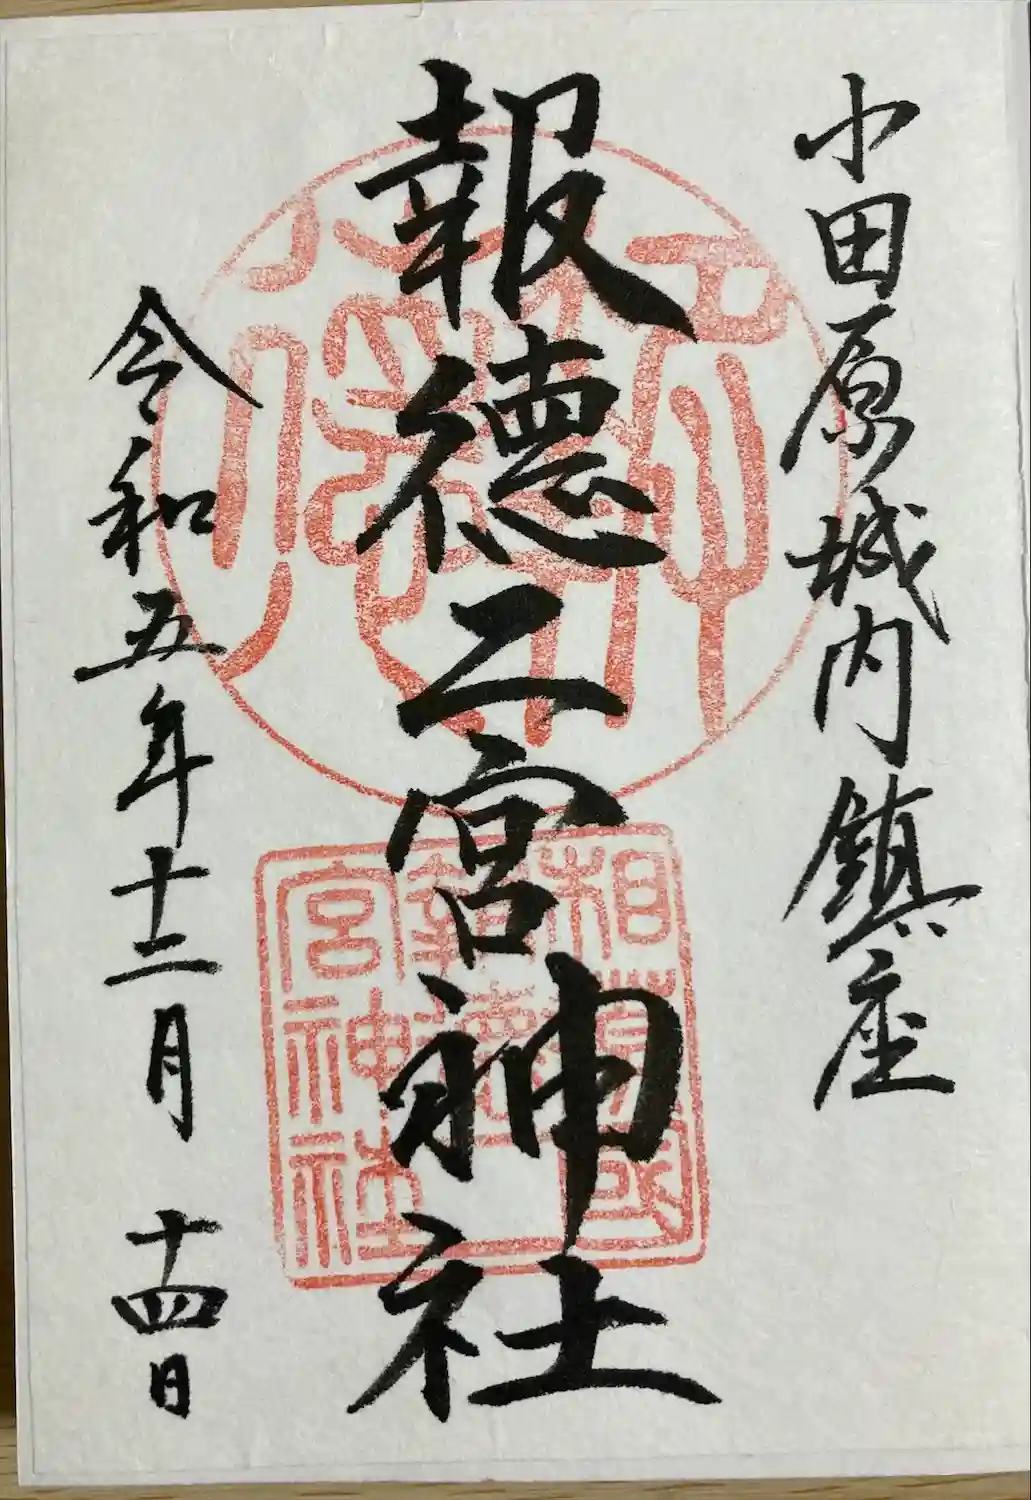 小田原城内鎮座
報徳二宮神社
令和五年十二月十四日
相模國
報徳二
宮神社